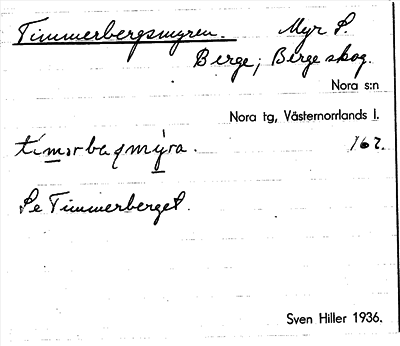 Timmerbergsmyren. Myr S.
Berge; Berge skog.
Nora s:n
Nora tg, Västernorrlands l.
tímərbaqmỳra. 167.
Se Timmerberget.
Sven Hiller 1936.